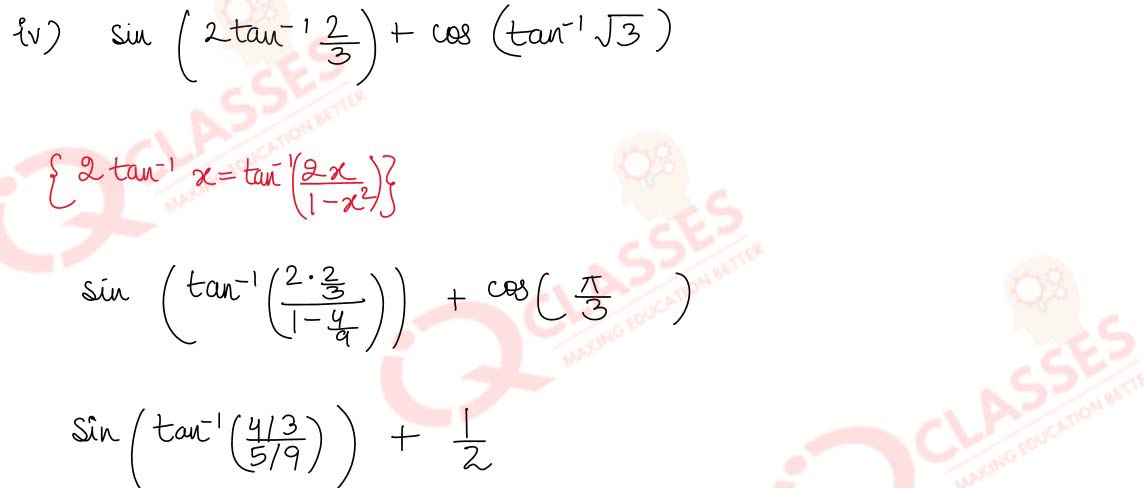 iv) sin (2 tan⁻¹ 2/3) + cos (tan⁻¹ √3)
{2 tan⁻¹ x = tan⁻¹(2x/(1-x²))}
sin (tan⁻¹((2·2/3)/(1-4/9))) + cos(π/3)
sin (tan⁻¹((4/3)/(5/9))) + 1/2
CLASSES
MAKING EDUCATION BETTER
CLASSES
MAKING EDUCATION BETTER
CLASSES
MAKING EDUCATION BETTER